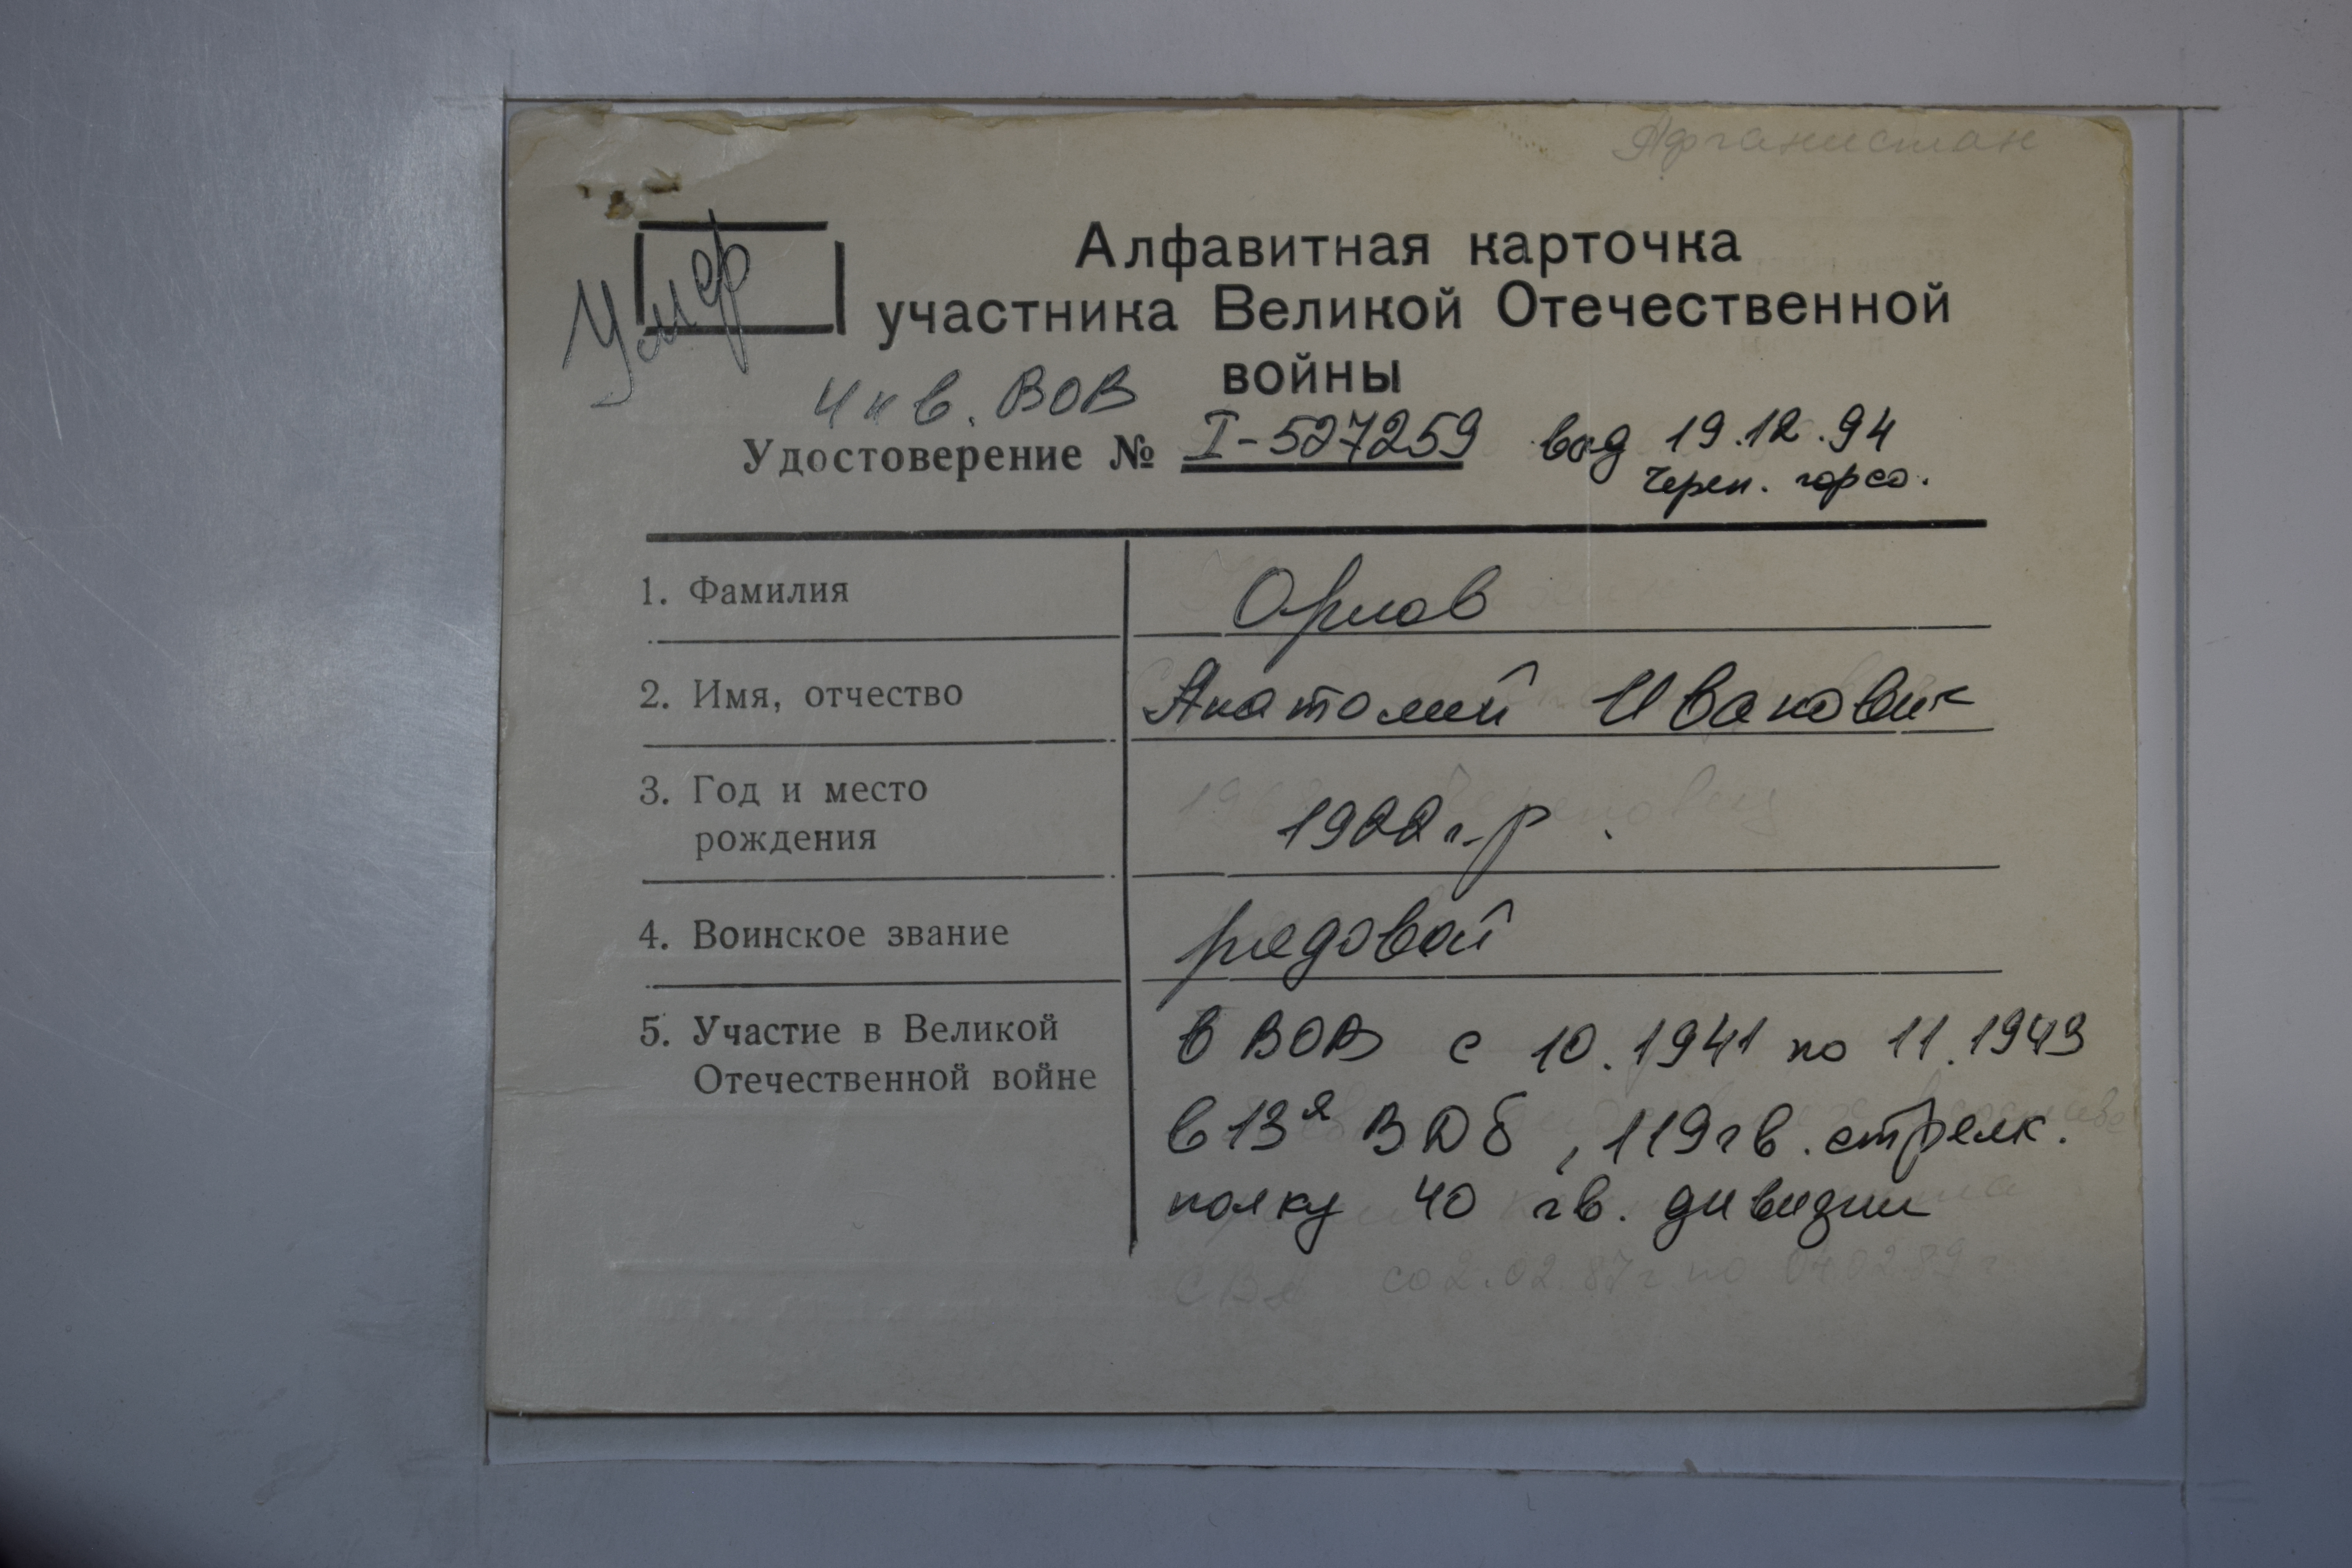 Афганистан
Умер
Алфавитная карточка
участника Великой Отечественной
войны
Инв. ВОВ
Удостоверение № I-527259 выд 19.12.94
Череп. горсо.
1. Фамилия Орлов
2. Имя, отчество Анатолий Иванович
3. Год и место
рождения 1922 г.р.
4. Воинское звание рядовой
5. Участие в Великой
Отечественной войне
в ВОВ с 10.1941 по 11.1943
в 13я ВДб, 119 гв. стрелк.
полку 40 гв. дивизии
со 2.02.87 г. по 04.02.89 г.